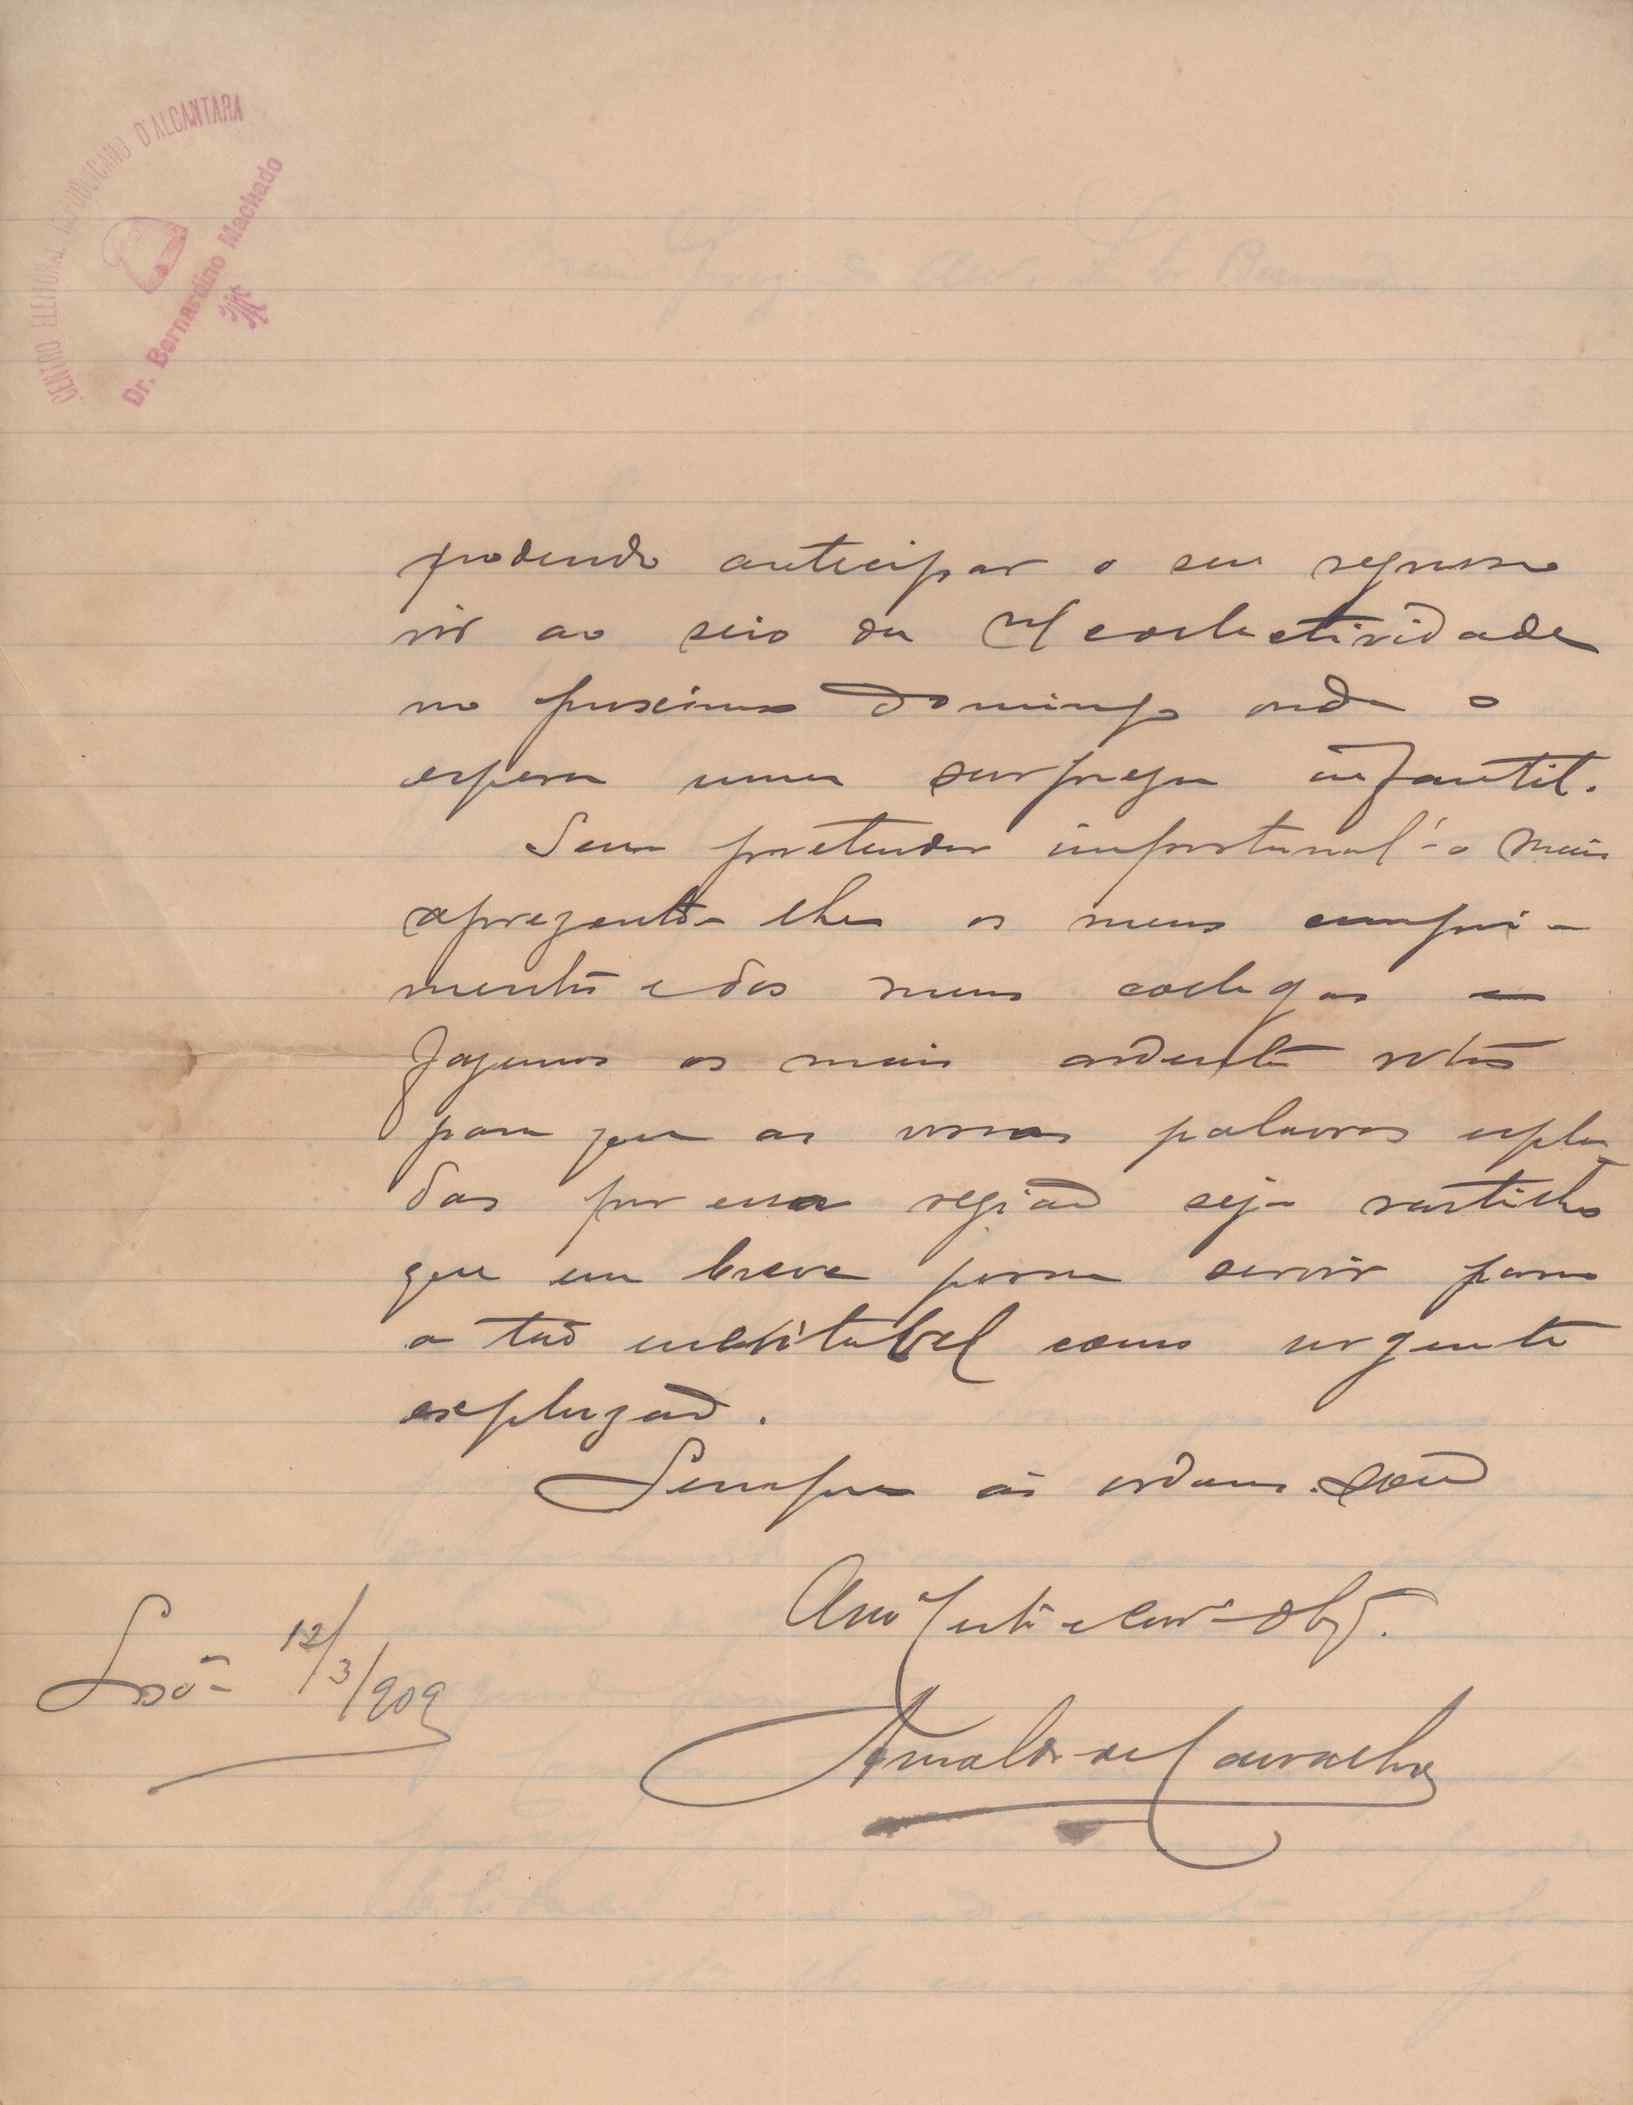 CENTRO ELEITORAL REPUBLICANO D'ALCANTARA
Dr. Bernardino Machado
podendo anticipar o seu regresso
vir ao seio da n/ coelectividade
no proximo domingo onde o
espera uma surpreza infantil.
Sem pretender importunal'-o mais
aprezento-lhe os meus cumpri-
mentos e dos meus coelegas e
fazemos os mais ardentes votos
para que as vossas palavras espla
das por essa região seja rastilho
que em breve possa servir para
a tão inevitabel como urgente
explozão.
Sempre ás ordens sou
Amº Certº e Corrº Obgº.
Lxoâ 12/3/909
Arnaldo de Carvalho